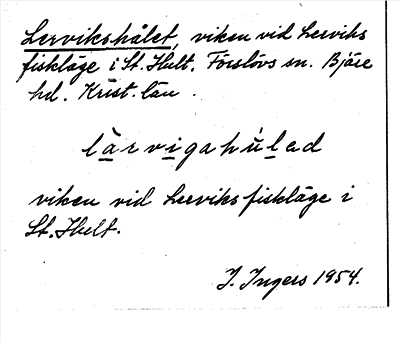 Lervikshålet, viken vid Lerviks
fiskläge i St. Hult. Förslövs sn. Bjäre
hd. Krist. län.
làrvigahúlad
viken vid Lerviks fiskläge i
St. Hult.
I. Ingers 1954.